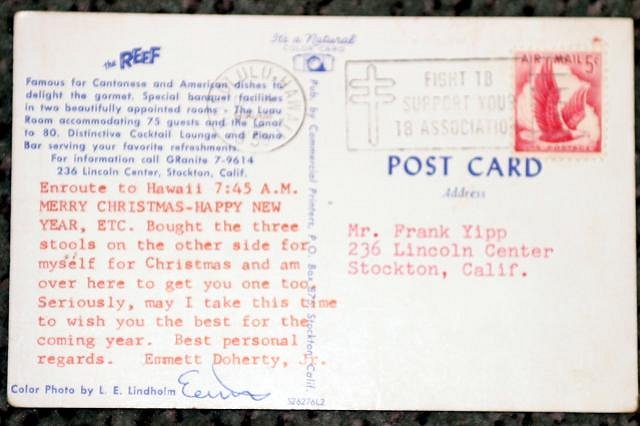 the REEF
Famous for Cantonese and American dishes to
delight the gormet. Special banquet facilities
in two beautifully appointed rooms - The Luau
Room accommodating 75 guests and the Lanai
to 80. Distinctive Cocktail Lounge and Piano
Bar serving your favorite refreshments.
For information call GRanite 7-9614
236 Lincoln Center, Stockton, Calif.
Enroute to Hawaii 7:45 A.M.
MERRY CHRISTMAS-HAPPY NEW
YEAR, ETC. Bought the three
stools on the other side for
myself for Christmas and am
over here to get you one too.
Seriously, may I take this time
to wish you the best for the
coming year. Best personal
regards. Emmett Doherty, Jr.
Color Photo by L. E. Lindholm
It's a Natural
COLOR CARD
Pub by Commercial Printers, P.O. Box Stockton, Calif.
S26276L2
HAWAII
FIGHT TB
SUPPORT YOUR
TB ASSOCIATION
AIR MAIL 5¢
U.S. POSTAGE
POST CARD
Address
Mr. Frank Yipp
236 Lincoln Center
Stockton, Calif.